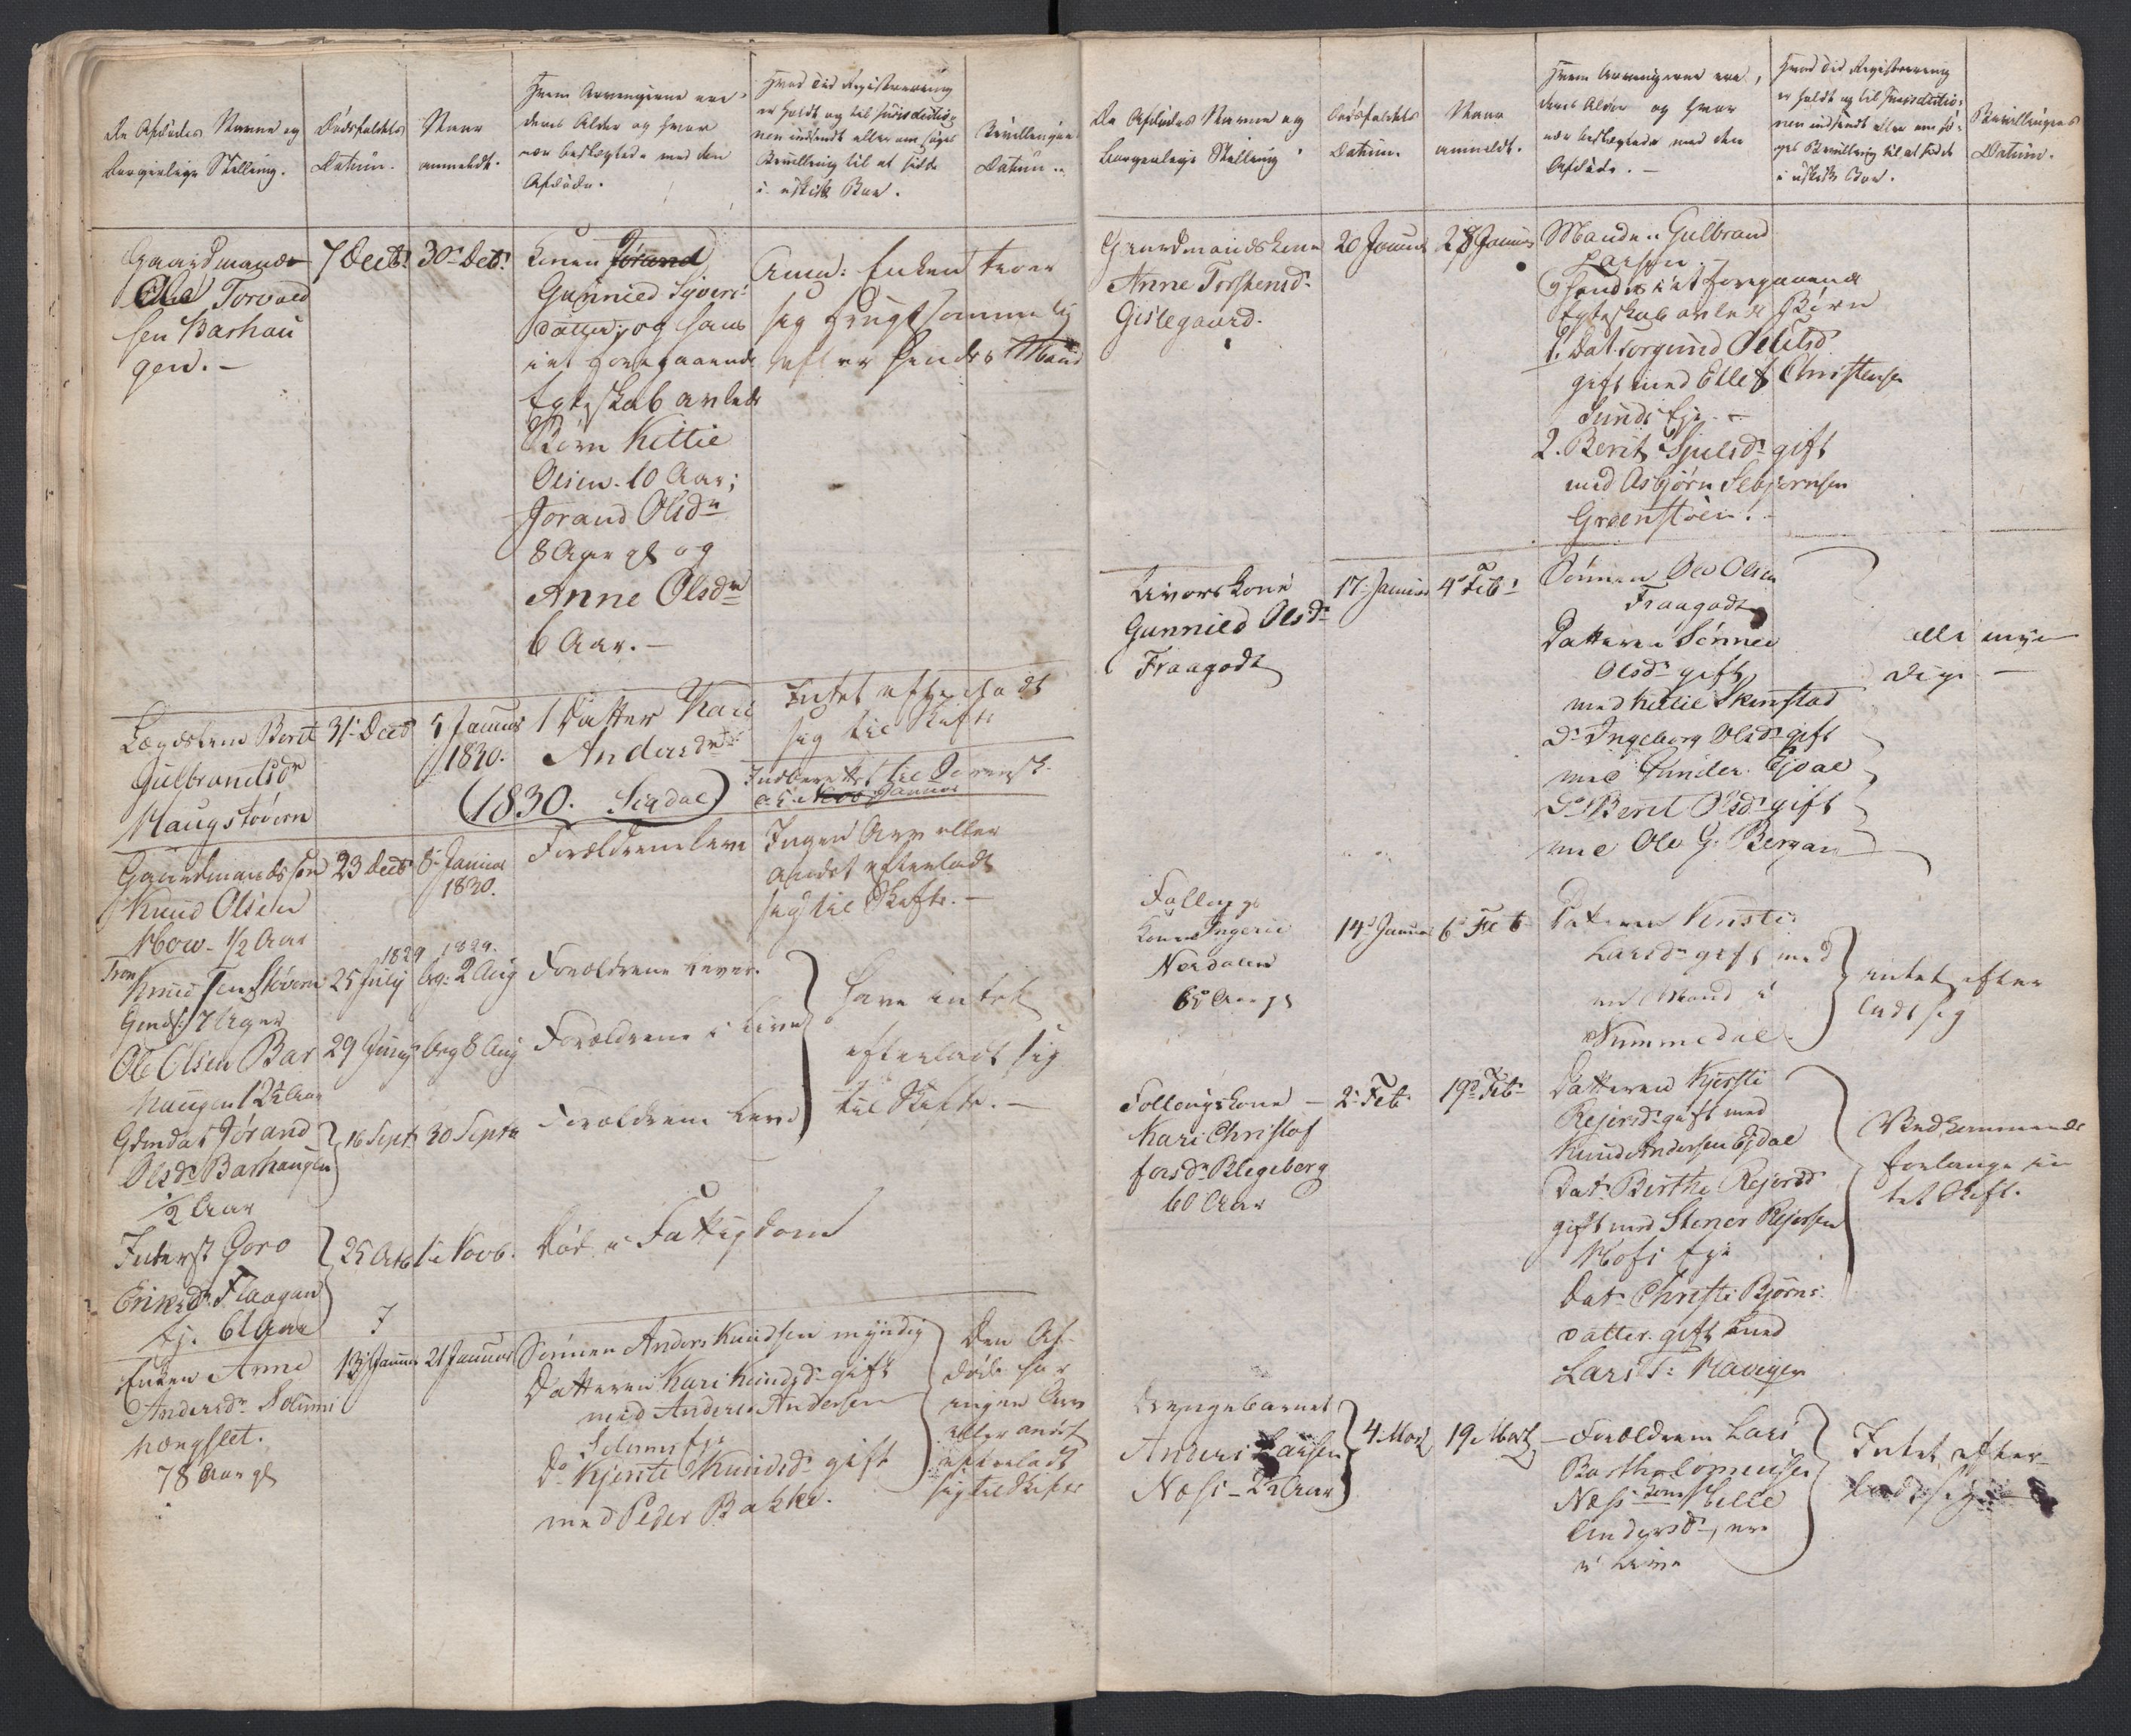 De Afdødes Navne og
Borgerlige Stilling.
Dødsfaldets
Datum.
Naar
anmeldt.
Hvem Arvingerne ere
deres Alder og hvor
nær beslægtede med den
Afdøde.
Hvad Tid Registrering
er holdt og til Jurisdictio-
nen indsendt eller om søges
Bevilling til at sidde
i uskift Boe.
Bevillingens
Datum.
Gaardmand
Ole Torvald
sen Barhau
gen.
7 Decbr
30 Decbr
Konen Jørand
Gunnild Syvers
datter, og hans
i et foregaaende
Egteskab avlede
Børn Kittil
Olsen 10 Aar;
Jorand Olsdr
8 Aar gl og
Anne Olsdr
6 Aar.
Anm: Enken troer
sig frugtsommelig
efter hendes Mand
Lægdslem Berit
Gulbrandsdr
Haugstøvern
31 Decb
5 Januar
1830.
1 Datter Kari
Andersdr
Intet efterladt
sig til Skifte
(1830. Sigdal)
Indberettet til Sorensk.
Januar
Gaardmandssøn
Knud Olsen
Moen ½ Aar
23 Decb
8 Januar
1830.
Forældrene leve
Ingen Arv eller
andet efterladt
sig til Skifte.
Knud Støvern
7 Aar
1829
25 July
1829.
beg: 2 Aug
Forældrene lever.
Ole Olsen Bar
haugen 12½ Aar
29 Juny
beg 8 Aug
Forældrene i Live
Have intet
efterladt sig
til Skifte.
Gdmdat Jørand
Olsdr Barhaugen
½ Aar
16 Sept
30 Septr
Forældrene Leve
Inderst Goro
Eriksdr Flaagan
Ej. 61 Aar
25 Octb
1 Novb.
Død i Fattigdom
Enken Anne
Andersdr Solums
hængslet.
78 Aar gl
13 Januar
21 Januar
Sønnen Anders Knudsen myndig
Datteren Kari Knudsdr gift
med Anders Andersen
Solums Eje
Do Kjersti Knudsdr gift
med Peder Bakke.
Den Af-
døde har
ingen Arv
eller andet
efterladt
sig til Skifte
De Afdødes Navne og
borgerlige Stilling
Dødsfaldets
Datum.
Naar
anmeldt.
Hvem Arvingerne ere,
deres Alder og hvor
nær beslægtede med den
Afdøde.
Hvad Tid Registrering
er holdt og til Jurisdictio-
nen indsendt eller om sø-
ges Bevilling til at sidde
i uskift Boe.
Bevillingens
Datum.
Gaardmandskone
Anne Torstensd.
Gislegaard.
20 Januar
28 Januar
Manden Gulbrand
Larsen
og hendes i et foregaaende
Egteskab avlede Børn
1. Dat. Jorgund
gift med Ellef Christensen
Lunds Eje.
2. Berit Sjulsdr gift
med Asbjørn Asbjørnsen
Grønstøen.
Livørs Kone
Gunnild Olsdr
Fraagodt
17 Januar
4 Feb
Sønnen Ole Olsen
Fraagodt
Datteren Sønnev
Olsdr gift
med Kittil Skinstad
Do Ingeborg Olsdr gift
med Gunder Ejdal
Do Berit Olsdr gift
med Ole G. Bergan
alle myn
dige
Follougs
Konen Ingerie
Nerdalen
65 Aar gl
14 Januar
6 Feb
Datteren Kersti
Larsdr gift med
en Mand i
Nummedal.
intet efter
ladt sig
Follougskone
Kari Christof
fersdr Blegeberg
60 Aar
2 Feb
19 Feb
Datteren Kjersti
Rejersdr gift med
Knud Andersen Ejdal
Dat. Birthe Rejersdr
gift med Stener Rejersen
Mofs Eje
Dat. Christi Bjørns
datter gift med
Lars T. Haugen
Vedkommende
forlange in
tet Skift.
Drengebarnet
Anders Larsen
Næss 2½ Aar
4 Marts
19 Marts
Forældrene Lars
Bartholomeusen
Næss Kone Sille
Andersdr, ere
i Live
Intet efter-
ladt sig